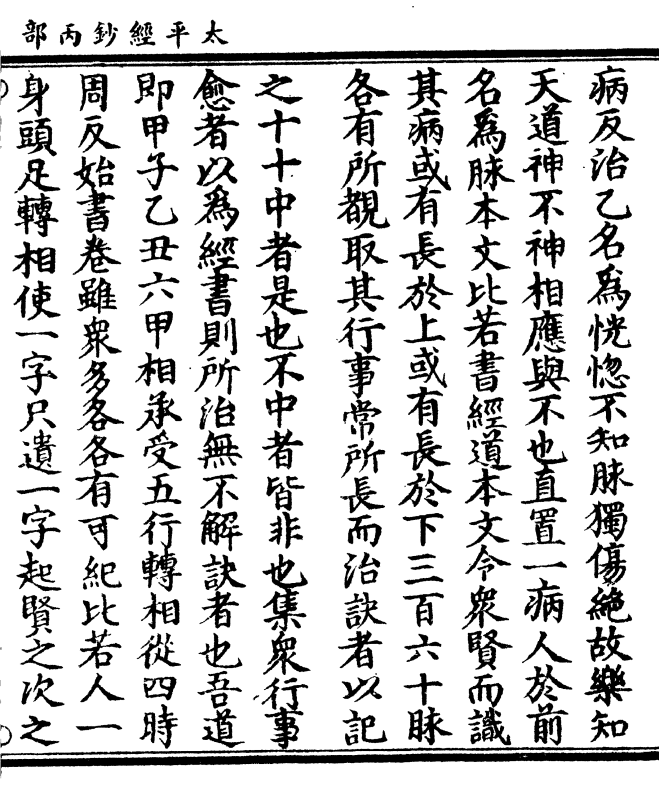 太平經鈔丙部
病反治乙名爲恍惚不知脉獨傷絕故樂知
天道神不神相應與不也直置一病人於前
名爲脉本文比若書經道本文令衆賢而識
其病或有長於上或有長於下三百六十脉
各有所覩取其行事常所長而治訣者以記
之十十中者是也不中者皆非也集衆行事
愈者以爲經書則所治無不解訣者也吾道
即甲子乙丑六甲相承受五行轉相從四時
周反始書卷雖衆多各各有可紀比若人一
身頭足轉相使一字尺遺一字起賢之次之